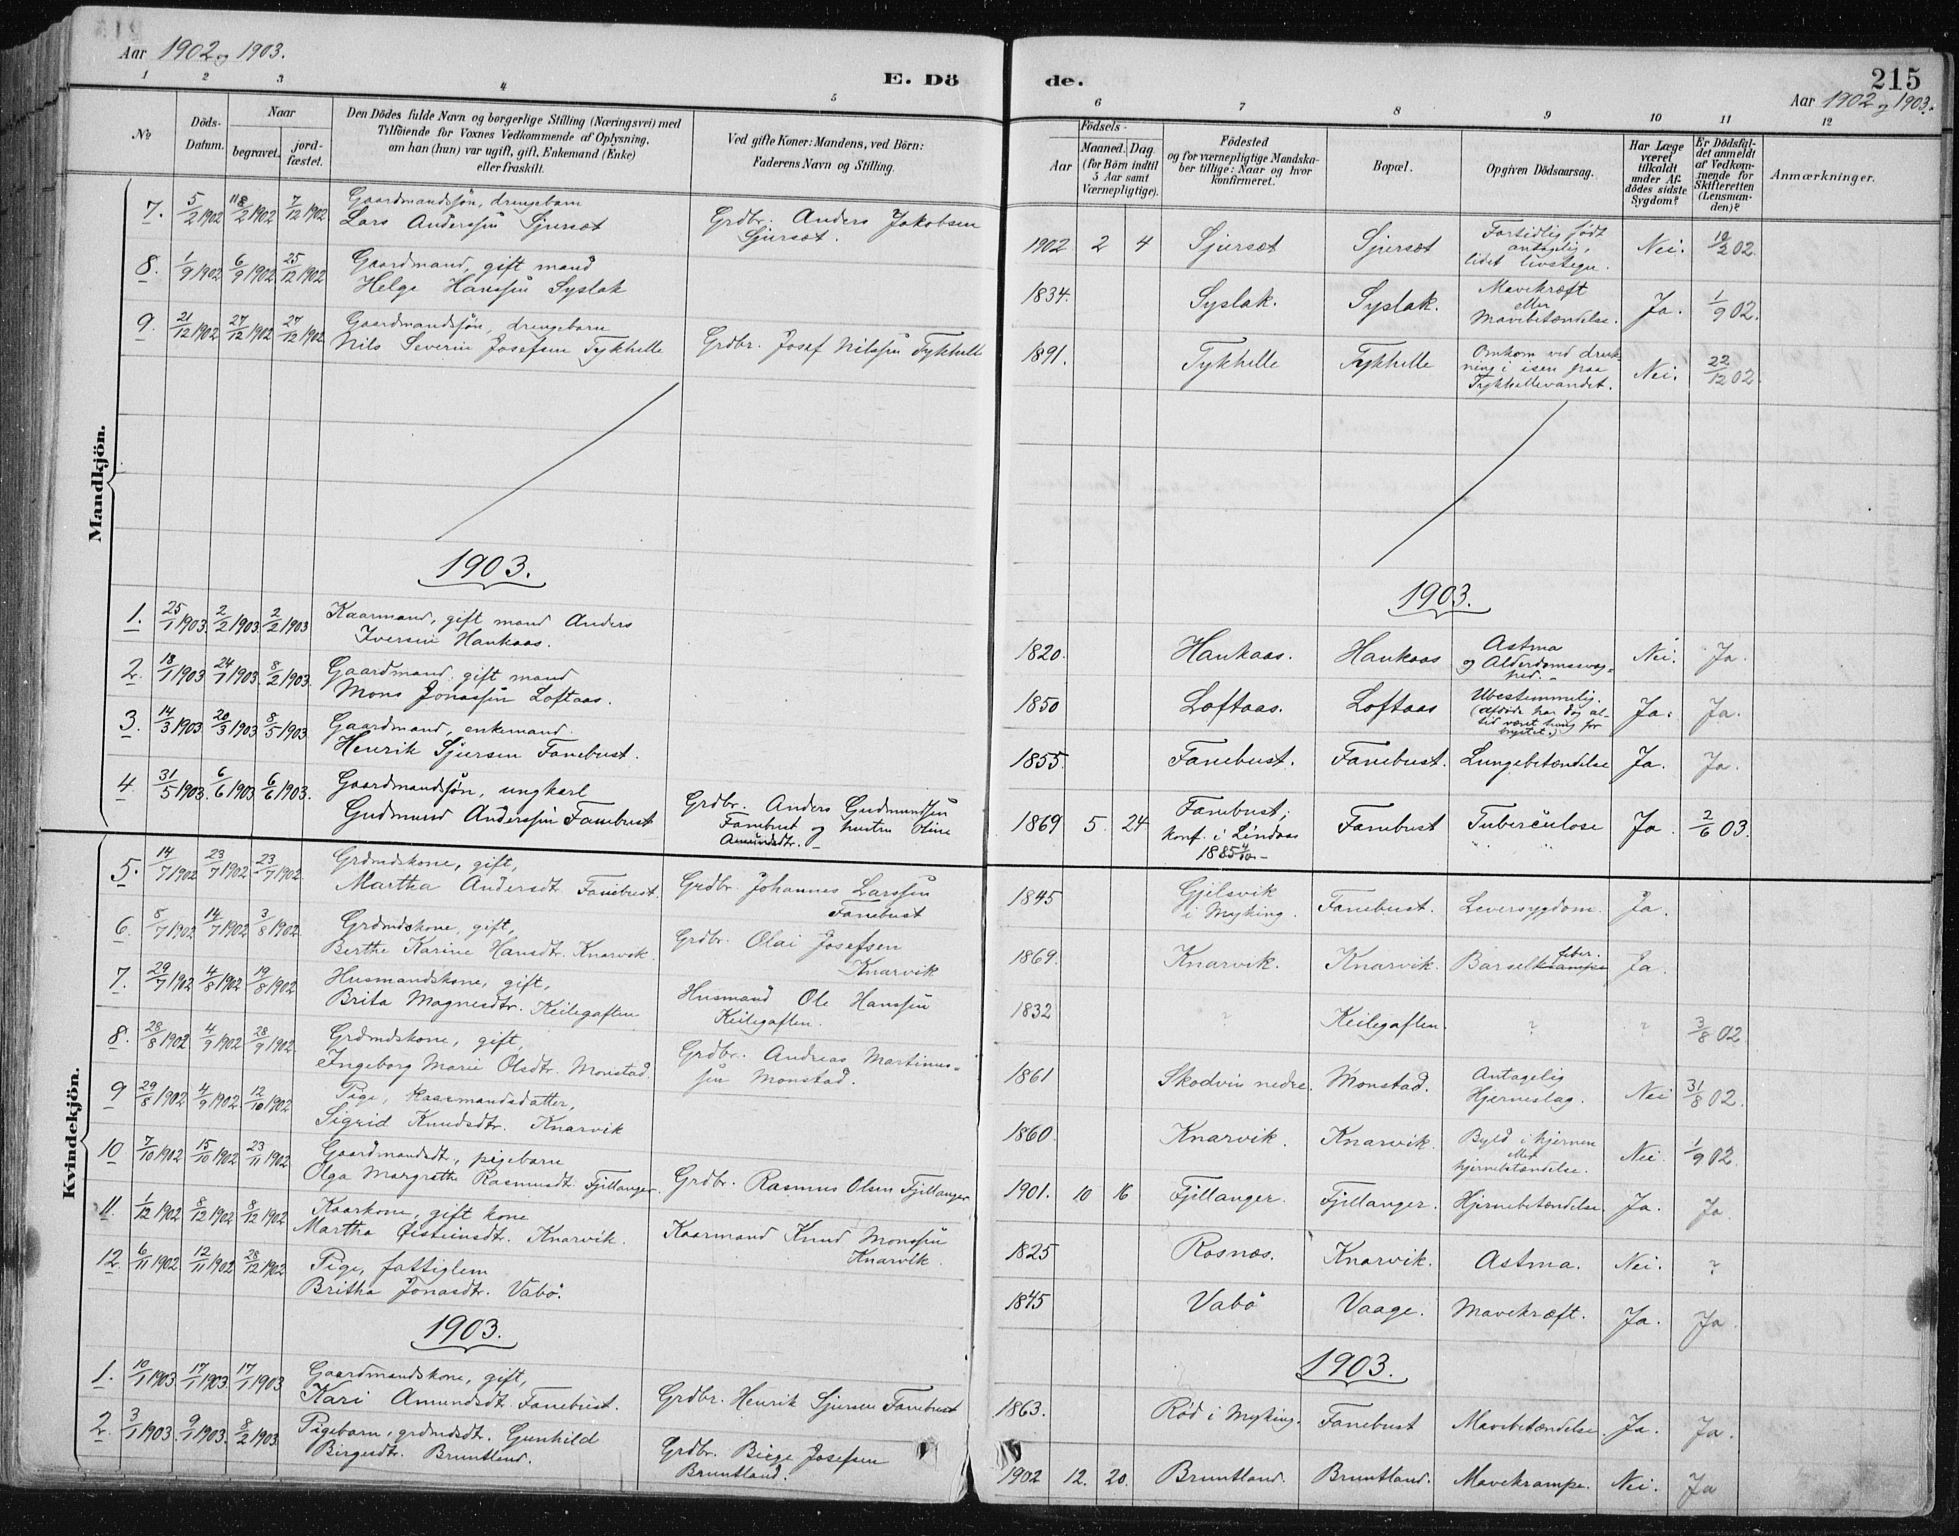 Aar 1902 og 1903.
E. Dö
1 2 3 4 5
№
Döds-
Datum.
Naar
begravet.
jord-
fæstet.
Den Dödes fulde Navn og borgerlige Stilling (Næringsvei) med
Tilföiende for Voxnes Vedkommende af Oplysning,
om han (hun) var ugift, gift, Enkemand (Enke)
eller fraskilt.
Ved gifte Koner: Mandens, ved Börn:
Faderens Navn og Stilling.
Mandkjön.
7. 5/2 1902 8/2 1902 7/12 1902 Gaardmandssøn, drengebarn
Lars Anderssøn Sjursæt
Grdbr. Anders Jakobsen
Sjursæt.
8. 1/9 1902 6/9 1902 25/12 1902 Gaardmand, gift mand
Helge Hanssøn Syslak
9. 21/12 1902 27/12 1902 27/12 1902 Gaardmandssøn, drengebarn
Nils Severin Josefsen Tykhelle
Grdbr. Josef Nilssøn Tykhelle
1903.
1. 25/1 1903. 2/2 1903. 2/2 1903 Kaarmand, gift mand Anders
Iversen Haukaas.
2. 18/1 1903 24/1 1903. 8/2 1903. Gaardmand, gift mand
Mons Jonassøn Loftaas.
3. 14/3 1903. 20/3 1903 8/5 1903. Gaardmand, enkemand.
Henrik Sjursen Fanebust.
4. 31/5 1903. 6/6 1903 6/6 1903. Gaardmandssøn, ungkarl
Gudmund Anderssøn Fanebust
Grdbr. Anders Gudmundsøn
Fanebust og hustru Oline
Amundsdtr.
Kvindekjön.
5. 14/7 1902 23/7 1902 23/7 1902. Grdmdskone, gift,
Martha Andersdt. Fanebust.
Grdbr. Johannes Larssøn
Fanebust
6. 8/7 1902 14/7 1902 3/8 1902. Grdmdskone, gift,
Berthe Karine Hansdtr. Knarvik
Grdbr. Olai Josefsen
Knarvik
7. 29/7 1902 4/8 1902 19/8 1902 Husmandskone, gift,
Brita Magnesdtr. Keilegaflen
Husmand Ole Hanssøn
Keilegaflen.
8. 28/8 1902 4/9 1902 28/9 1902. Grdmdskone, gift,
Ingeborg Marie Olsdtr. Monstad.
Grdbr. Andreas Martinus-
søn Monstad.
9 29/8 1902 4/9 1902 12/10 1902 Pige, Kaarmandsdatter,
Sigrid Knudsdtr. Knarvik
10 7/10 1902 15/10 1902 23/11 1902 Gaardmandsdt., pigebarn
Olga Margrethe Rasmusdt. Fjellanger.
Grdbr. Rasmus Olsen Fjellanger
11. 1/12 1902 8/12 1902 8/12 1902 Kaarkone, gift kone
Martha Øisteinsdt. Knarvik.
Kaarmand Knud Monssøn
Knarvik.
12. 6/11 1902 12/11 1902 28/12 1902 Pige, fattiglem
Britha Jonasdtr. Vabø.
1903.
1. 10/1 1903 17/1 1903. 17/1 1903 Gaardmandskone, gift,
Kari Amundsdt. Fanebust.
Grdbr. Henrik Sjursen Fanebust
2. 3/1 1903. 9/1 1903. 8/2 1903. Pigebarn, grdmdsdt. Gunhild
Birgesdtr. Bruntland.
Grdbr. Birge Josefsen
Bruntland.
de.
215
Aar 1902 og 1903.
6 7 8 9 10 11 12
Födsels-
Aar
Maaned. Dag
(for Börn indtil
5 Aar samt
Værnepligtige).
Födested
og for værnepligtige Mandska-
ber tillige: Naar og hvor
konfirmeret.
Bopæl.
Opgiven Dödsaarsag.
Har Læge
været
tilkaldt
under Af-
dödes sidste
Sygdom?
Er Dödsfal-
det anmeldt
af Vedkom-
mende for
Skifteretten
(Lensman-
den)?
Anmærkninger.
1902 2 4 Sjursæt Sjursæt Fortidlig født
antagelig,
lidet livstegn.
Nei. 02.
1834. Syslak. Syslak. Mavekræft
eller
Mavebetændelse.
Ja. 1/9 02.
1891. Tykhelle Tykhelle Omkom ved druk-
ning i isen paa
Tykhellevandet.
Nei. 22/12 02.
1903.
1820. Haukaas. Haukaas Astma
og Alderdomssvag-
hed.
Nei. Ja.
1850 Loftaas. Loftaas Ubestemmelig.
(Afdøde har dog al-
tid været tung for
brystet.)
Ja. Ja.
1855. Fanebust. Fanebust. Lungebetændelse Ja. Ja.
1869 5. 24 Fanebust;
konf. i Lindaas
1885 4/10.
Fanebust Tuberculose Ja 2/6 03.
1845 Gjelsvik
i Myking.
Fanebust. Leversygdom. Ja.
1869. Knarvik. Knarvik. Barselfeber. Ja.
1832 ? Keilegaflen. ? ? 3/8 02
1861 Skodvin nedre. Monstad. Antagelig
Hjerneslag.
Nei 31/8 02.
1860. Knarvik. Knarvik. Byld i hjernen
Med
hjernebetændelse.
Nei. 1/9 02.
1901. 10 16 Fjellanger. Fjellanger. Hjernebetændelse Ja. Ja.
1825 Rosnæs. Knarvik. Astma. Nei. ?
1845 Vabø Vaage. Mavekræft. Ja. Ja.
1903.
1863. Rød i Myking. Fanebust Mavebetændelse. Ja. Ja.
1902 12. 20. Bruntland. Bruntland. Mavekrampe. Nei. Ja